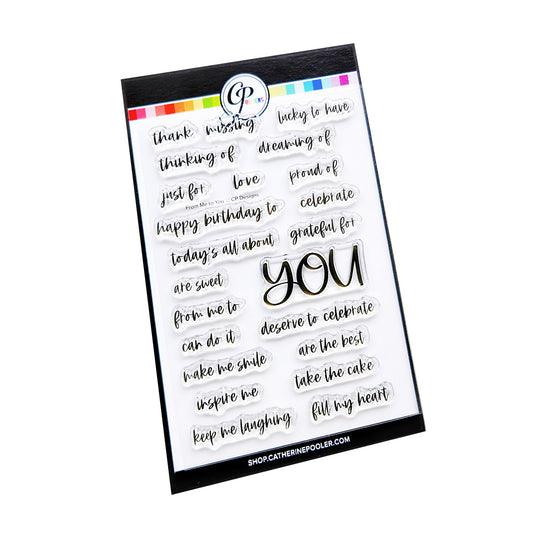 CP
DESIGNS
thank missing lucky to have
thinking of dreaming of
just for love proud of
From Me to You CP Designs
happy birthday to celebrate
today's all about grateful for
are sweet YOU
from me to deserve to celebrate
can do it are the best
make me smile take the cake
inspire me fill my heart
keep me laughing
SHOP.CATHERINEPOOLER.COM